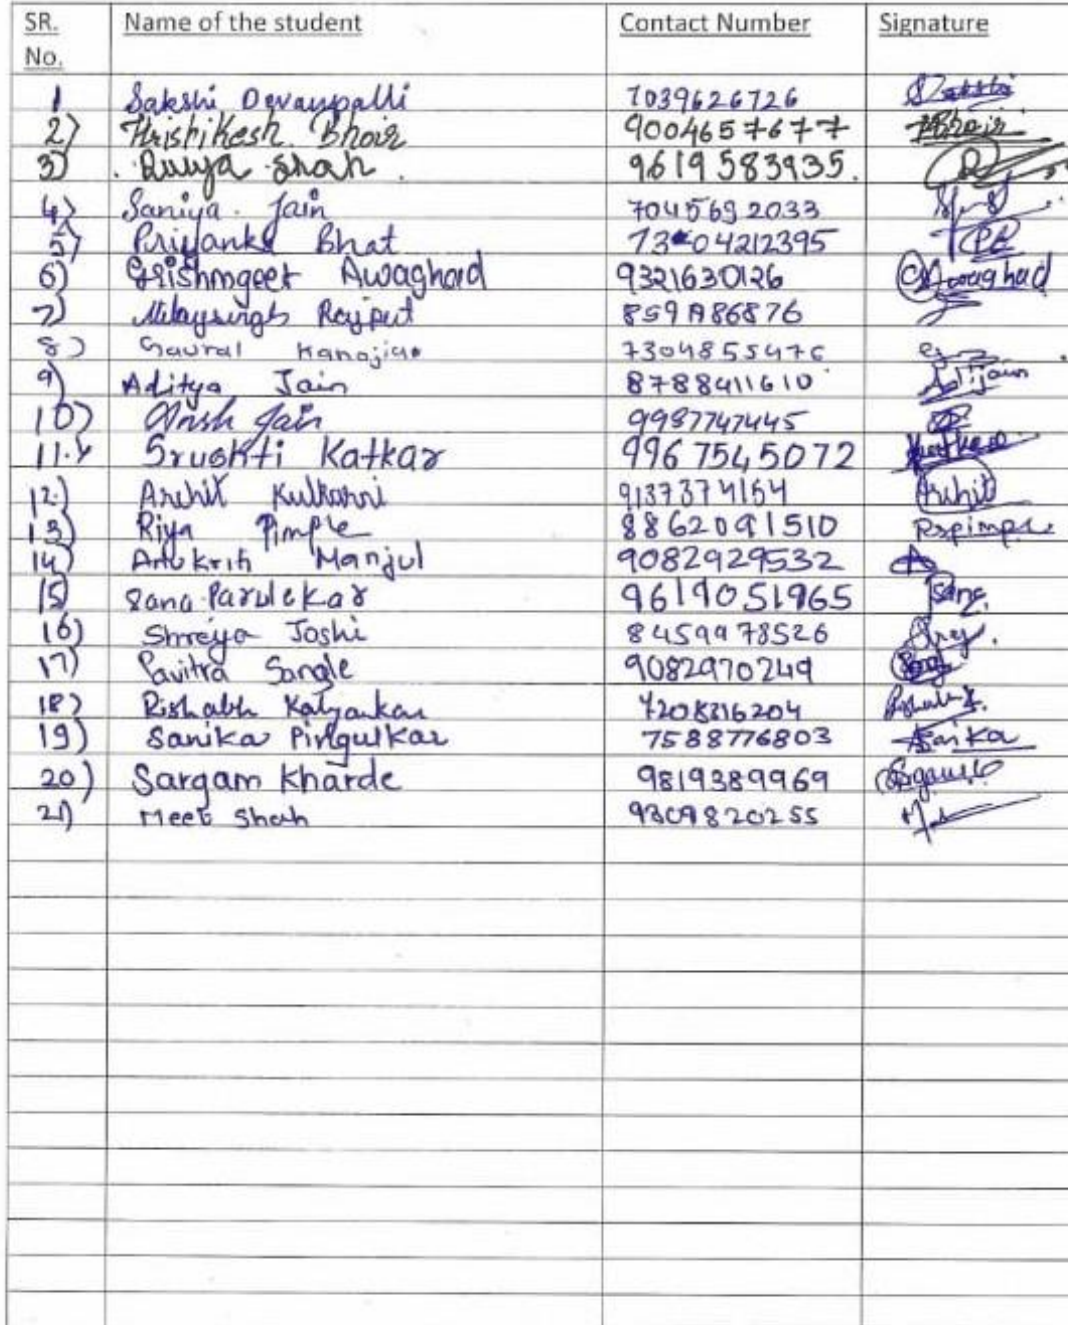 SR. No. Name of the student Contact Number Signature
1 Sakshi Devanpalli 7039626726
2) Hrishikesh Bhoir 9004657677 HBhoir
3) Shah 9619583935.
4) Saniya Jain 7045692033
5) Priyanka Bhat 7304212395 PB
6) Grishmgeet Awaghad 9321630126 Awaghad
7) Rajput
8) Kanojiya
9) Aditya Jain 8788411610 Adijain
10) Ansh Jain 9987747445
11. Srushti Katkar 9967545072
12.) Archit Kulkarni 9137374164 Archit
13) Riya Pimple 8862091510 Rspimple
14) Anukriti Manjul 9082929532
15) Sana Parulekar 9619051965 Sana
16) Shreya Joshi 8459978526
17) Pavitra Sangle 9082970249
18) Rishabh Kalyankar 7208316204
19) Sanika Pingulkar 7588776803 Sanika
20) Sargam Kharde 9819389969
21) Meet Shah